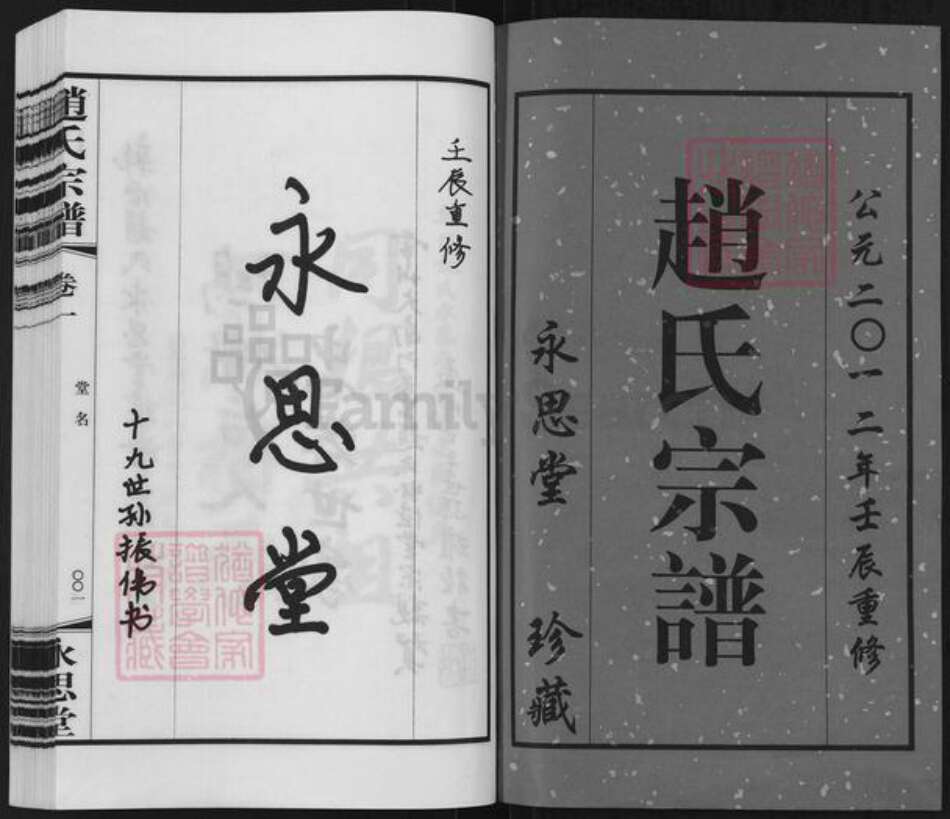 公元二〇一二年壬辰重修
趙氏宗譜
永思堂 珍藏
壬辰重修
永思堂
十九世孙振伟书
趙氏宗譜 卷一
堂名
〇〇一
永思堂